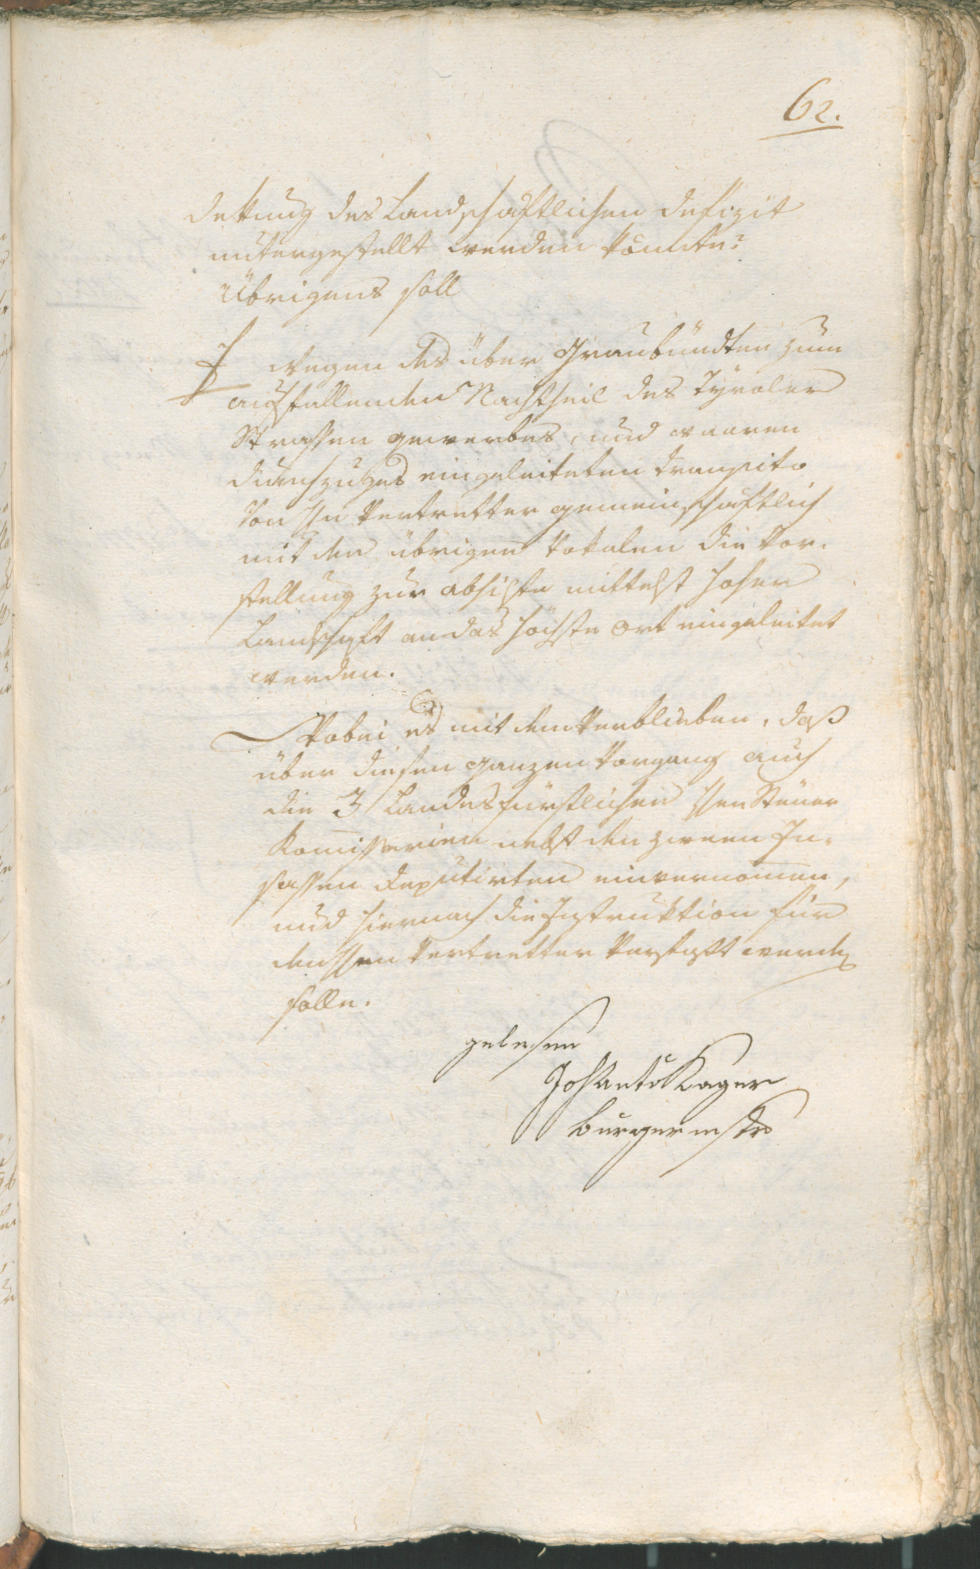 62.
dekung des Landschaftlichen defizit
untergestellt werden könnte?
Übrigens soll
wegen des über Graubündten zum
auffallenden Nachtheil des Tÿroler
Strassen gewerbes, und waaren
durchzuges eingeleiteten transito
von Hn Vertretter gemeinschaftlich
mit den übrigen Vokalen die Vor-
stellung zur abhilfe mittelst hoher
Landschaft an das höchste Ort eingeleitet
werden.
Wobei es mit dem verblieben, daß
über diesen ganzen Vorgang auch
die 3 Landesfürstlichen Hen Steuer
Kommissarien nebst den zween In-
sassen deputirten einvernomen,
und hiernach die Instruktion für
den Hen Vertretter verfasst werden
solle.
gelesen
Joh Anto Kager
burgermstr